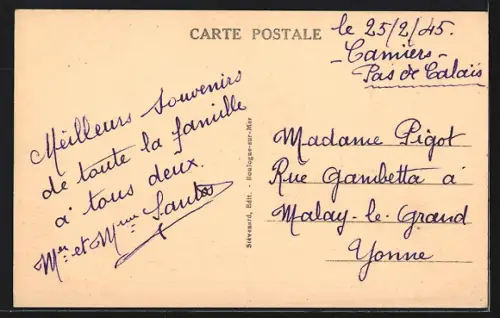 CARTE POSTALE
le 25/2/45.
- Camiers -
Pas de Calais
Meilleurs Souvenirs
de toute la famille
à tous deux.
Mr et Mme
Stevenard, Edit. - Boulogne-sur-Mer
Madame Pigot
Rue Gambetta à
Malay-le-Grand
Yonne